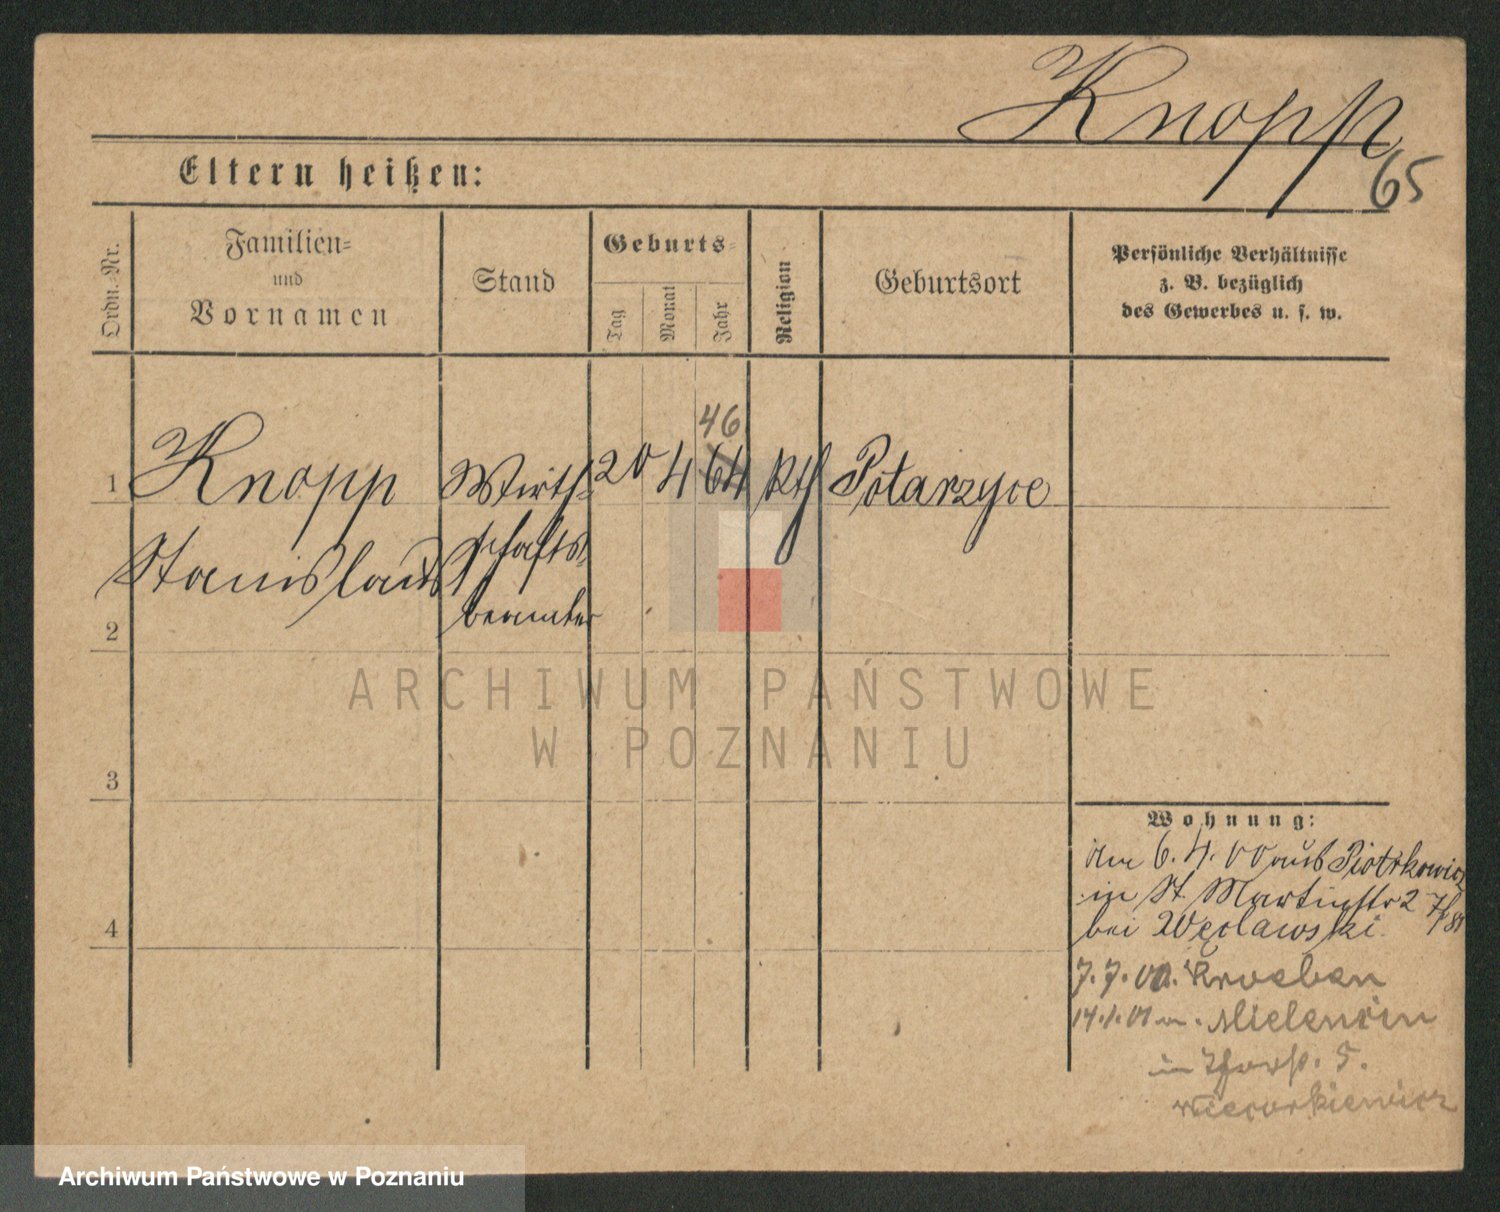 Knopp
65
Eltern heißen:
Ordn.-Nr.
Familien-
und
Vornamen
Stand
Geburts-
Tag
Monat
Jahr
Religion
Geburtsort
Persönliche Verhältnisse
z. B. bezüglich
des Gewerbes u. s. w.
46
1 Knopp Wirth- 20 4 64 Kth Potarzyce
Stanislaus schafts-
beamter
2
3
4
ARCHIWUM PAŃSTWOWE
W POZNANIU
Wohnung:
Am 6. 4. 00 aus Piotrkowice
in St. Martinstr 2
bei Węclawski
7. 7. 00. Kroeben
14. 1. 01 Mielencin
in 5.
Wieczorkiewicz
Archiwum Państwowe w Poznaniu